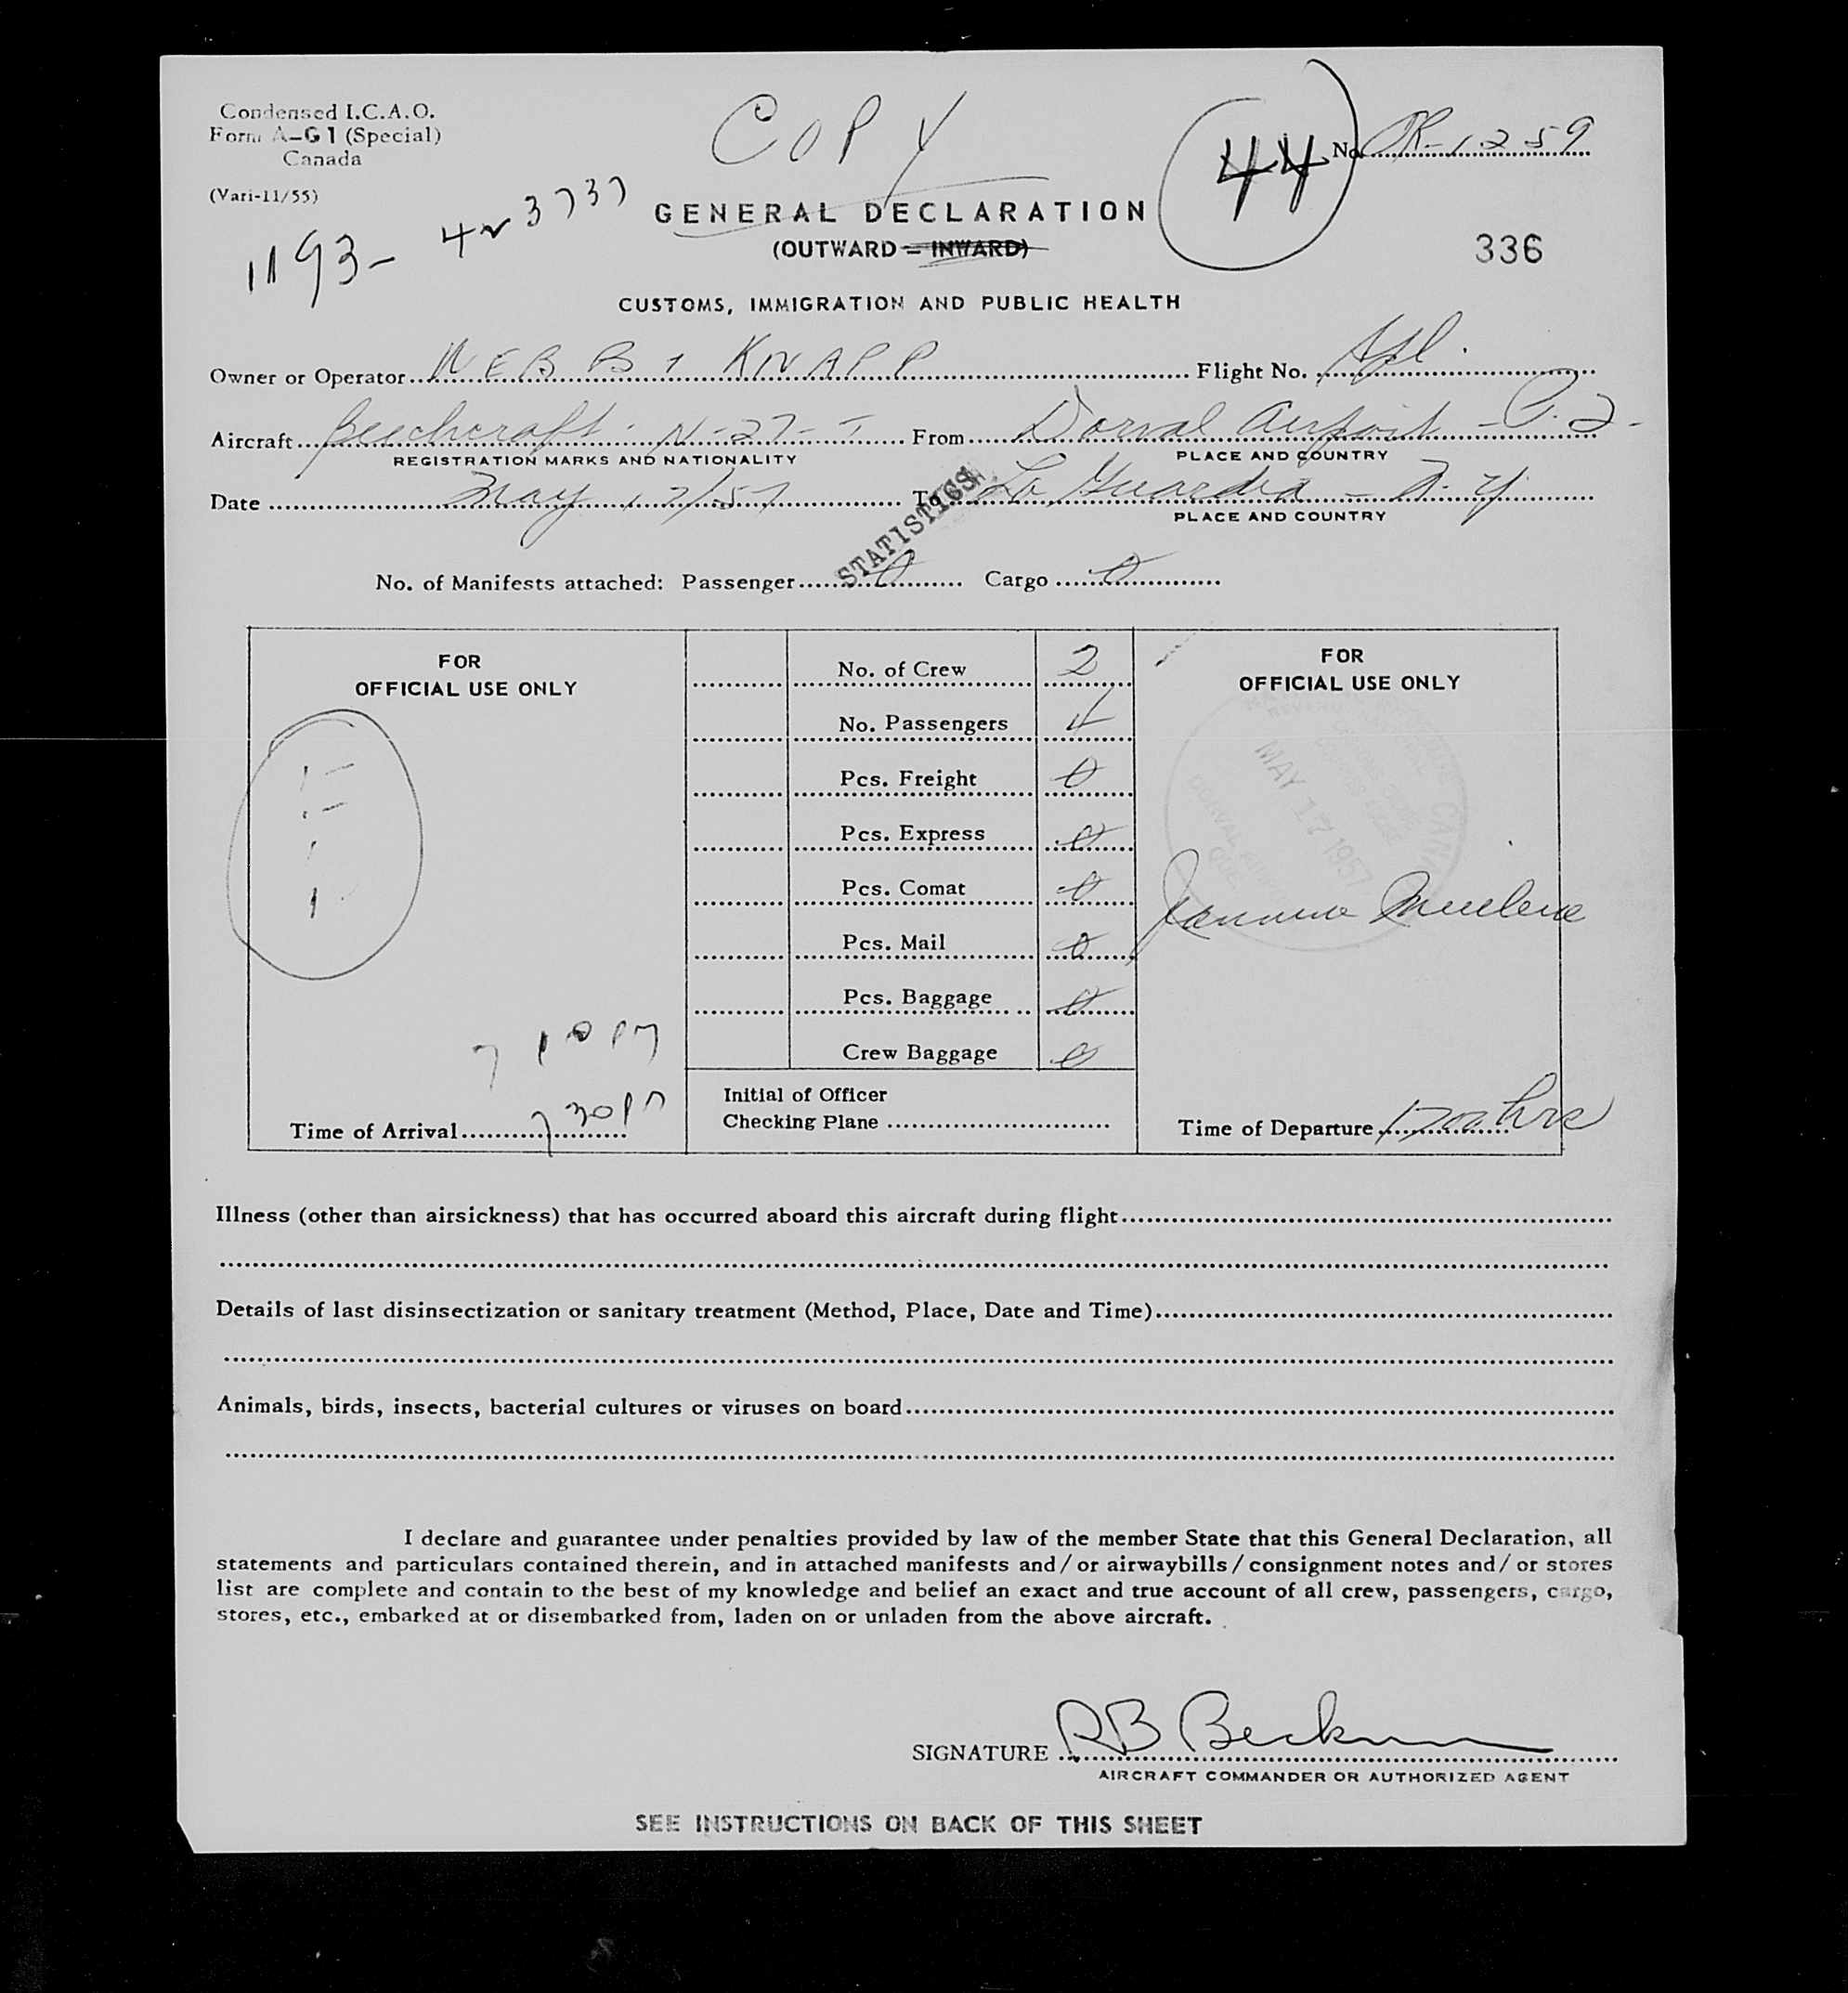 Condensed I.C.A.O.
Form A-G1 (Special)
Canada
(Vari-11/55)
COPY
44
No. OR-1259
1193-
GENERAL DECLARATION
(OUTWARD - INWARD)
336
CUSTOMS, IMMIGRATION AND PUBLIC HEALTH
Owner or Operator WEBB & KNAPP Flight No.
Aircraft Beechcraft N-27- From Dorval Airport - P.Q.
REGISTRATION MARKS AND NATIONALITY PLACE AND COUNTRY
Date May 17/57 To La Guardia - N.Y.
PLACE AND COUNTRY
STATISTICS
No. of Manifests attached: Passenger 0 Cargo 0
FOR
OFFICIAL USE ONLY
No. of Crew 2
No. Passengers 4
Pcs. Freight 0
Pcs. Express 0
Pcs. Comat 0
Pcs. Mail 0
Pcs. Baggage 0
Crew Baggage 0
FOR
OFFICIAL USE ONLY
MAY 17 1957
7 10 PM
Time of Arrival 7 30 PM
Initial of Officer
Checking Plane
Time of Departure 1700 hrs
Illness (other than airsickness) that has occurred aboard this aircraft during flight
Details of last disinsectization or sanitary treatment (Method, Place, Date and Time)
Animals, birds, insects, bacterial cultures or viruses on board
I declare and guarantee under penalties provided by law of the member State that this General Declaration, all
statements and particulars contained therein, and in attached manifests and/or airwaybills/consignment notes and/or stores
list are complete and contain to the best of my knowledge and belief an exact and true account of all crew, passengers, cargo,
stores, etc., embarked at or disembarked from, laden on or unladen from the above aircraft.
SIGNATURE RB Beckman
AIRCRAFT COMMANDER OR AUTHORIZED AGENT
SEE INSTRUCTIONS ON BACK OF THIS SHEET